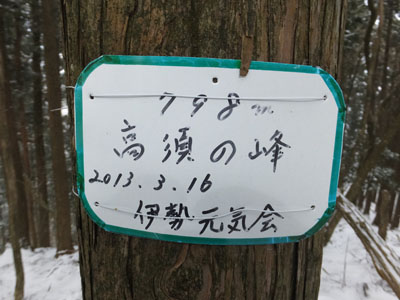 798m
高須の峰
2013.3.16
伊勢元気会